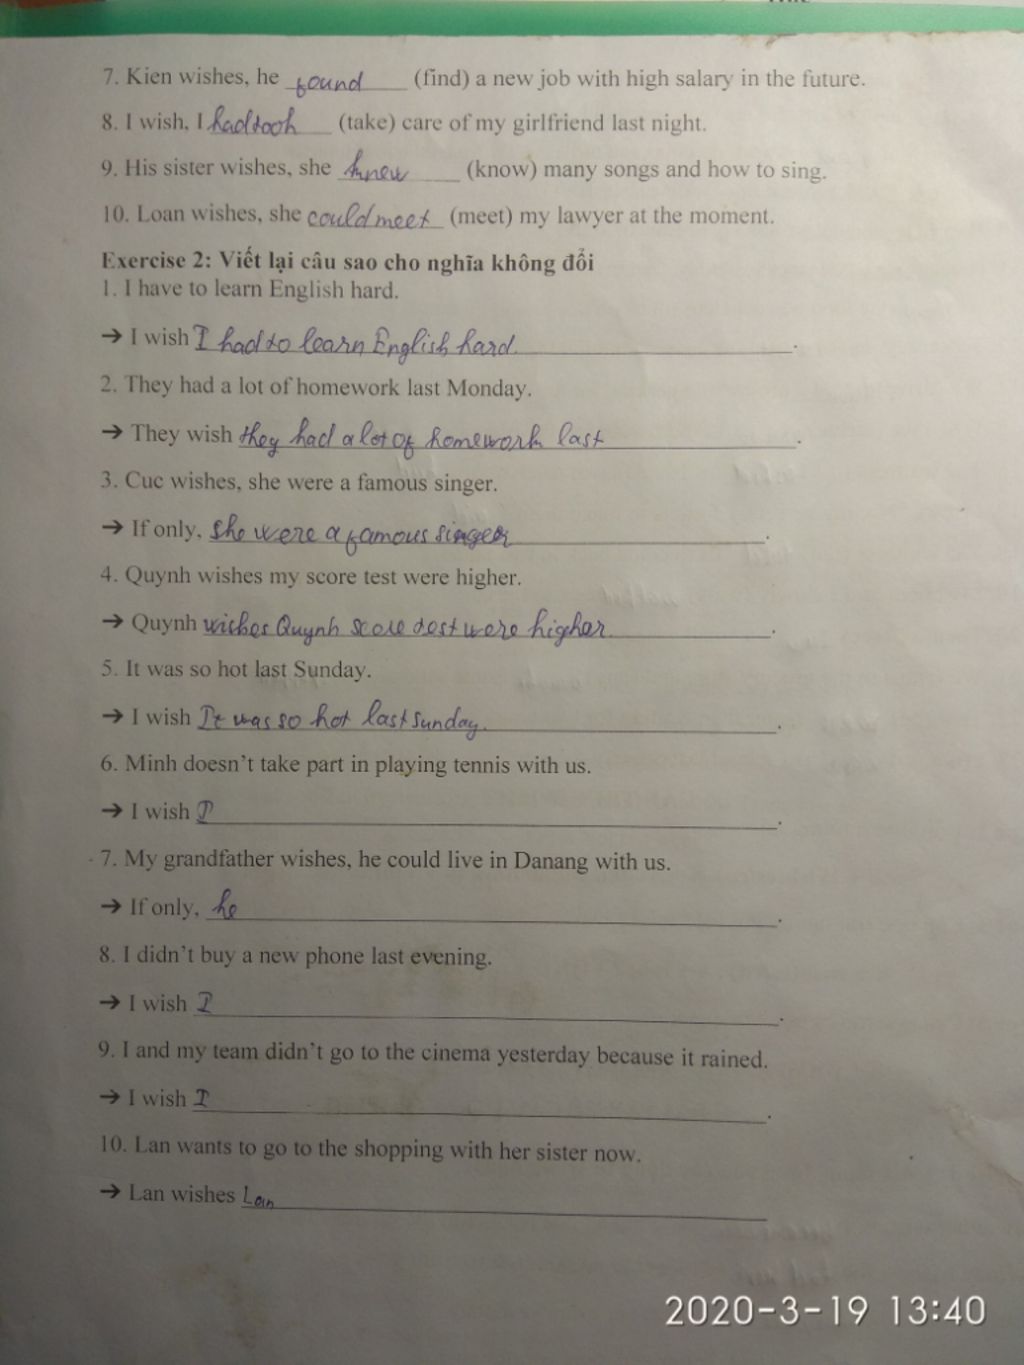 7. Kien wishes, he found (find) a new job with high salary in the future.
8. I wish, I had took (take) care of my girlfriend last night.
9. His sister wishes, she knew (know) many songs and how to sing.
10. Loan wishes, she could meet (meet) my lawyer at the moment.
Exercise 2: Viết lại câu sao cho nghĩa không đổi
1. I have to learn English hard.
➔ I wish I had to learn English hard.
2. They had a lot of homework last Monday.
➔ They wish they had a lot of homework last.
3. Cuc wishes, she were a famous singer.
➔ If only, she were a famous singer.
4. Quynh wishes my score test were higher.
➔ Quynh wishes Quynh score test were higher.
5. It was so hot last Sunday.
➔ I wish It was so hot last sunday.
6. Minh doesn't take part in playing tennis with us.
➔ I wish I.
7. My grandfather wishes, he could live in Danang with us.
➔ If only, he.
8. I didn't buy a new phone last evening.
➔ I wish I.
9. I and my team didn't go to the cinema yesterday because it rained.
➔ I wish I.
10. Lan wants to go to the shopping with her sister now.
➔ Lan wishes Lan
2020-3-19 13:40